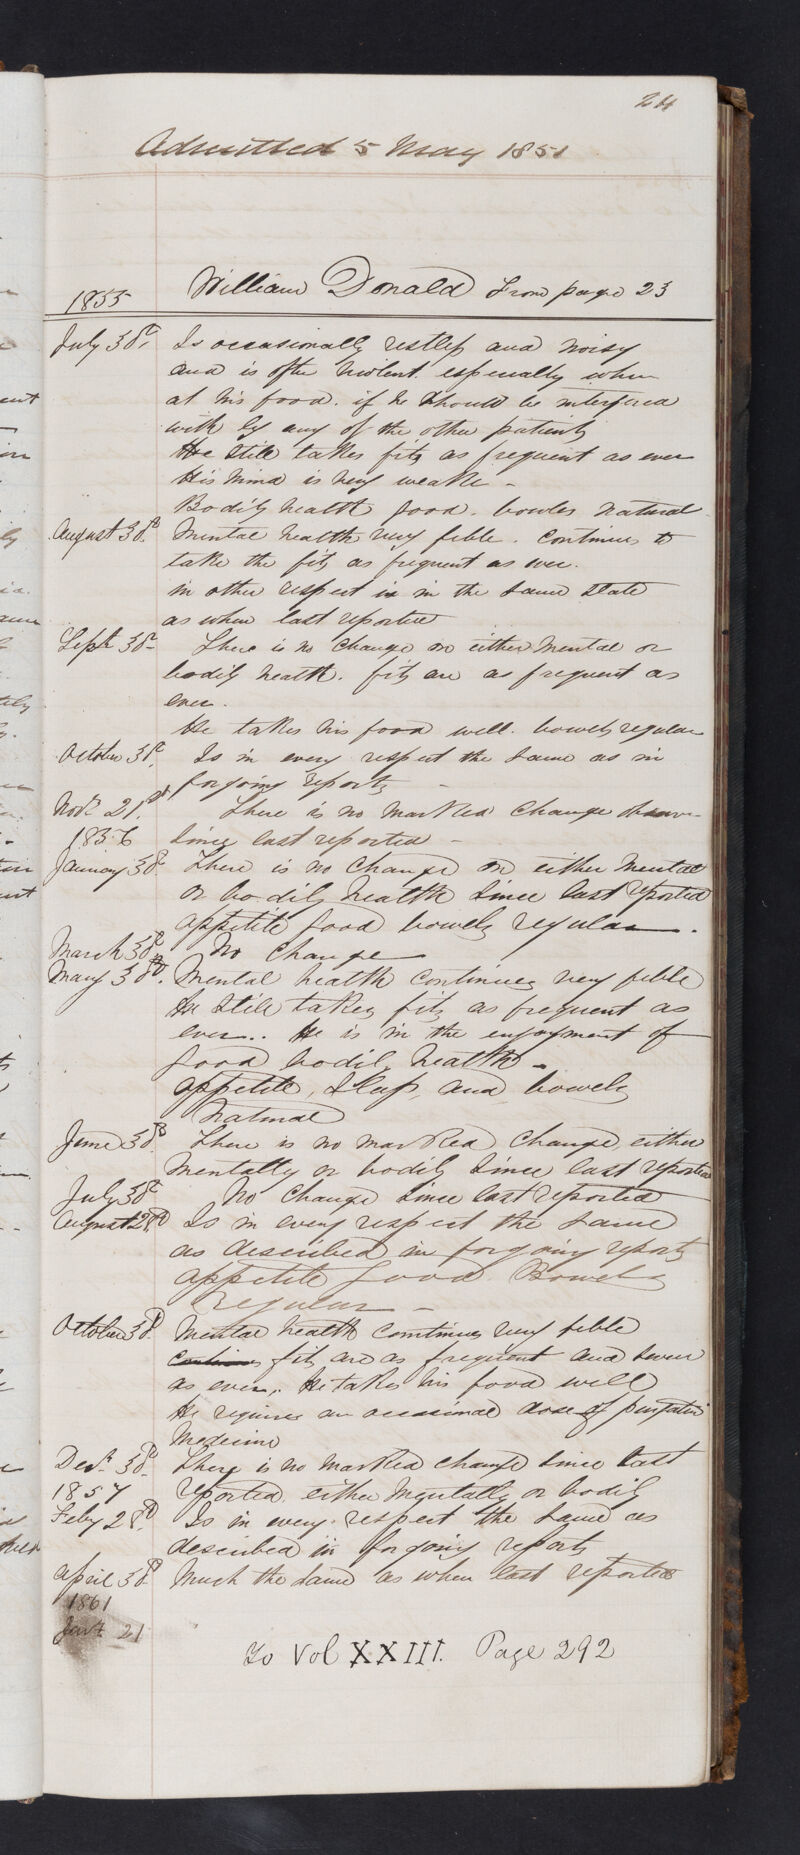 24
Admitted 5 May 1851
1855 William Donald From page 23
July 30th Is occasionally restless and noisy
and is often violent especially when
at his food. if he should be interfered
with by any of the other patients
He still takes fits as frequent as ever
His mind is very weake -
Bodily health good. bowles natural
August 30th Mental health very feble. Continues to
take the fits as frequent as ever.
in other respect is in the same state
as when last reported
Sept 30th There is no change in either mental or
bodily health. fits are as frequent as
ever.
He takes his food well. bowels regular
October 30th Is in every respect the same as in
forgoing reports -
Novr 21st There is no marked change
1856 since last reported -
January 30th There is no change in either mental
or bodily health since last reported
appetite good bowels regular.
March 30th No change
May 30th. Mental health continues very feble
He still takes fits as frequent as
ever.. He is in the enjoyment of
good bodily health -
appetite, Sleep, and bowels
Natural
June 30th There is no marked change either
mentally or bodily since last reported
July 30th No change since last reported
August 28th Is in every respect the same
as described in forgoing reports
appetite good Bowels
regular -
October 30th Mental health continues very feble
continues fits are as frequent and sever
as ever,. He takes his food well
He requires an occasional dose of purgative
Medecine
Decr 30th There is no marked change since last
1857 reported either mentally or bodily
Feby 28th Is in every respect the same as
described in forgoing reports
April 30th Much the same as when last reported
1861
Jany 21
To Vol XXIII. Page 292